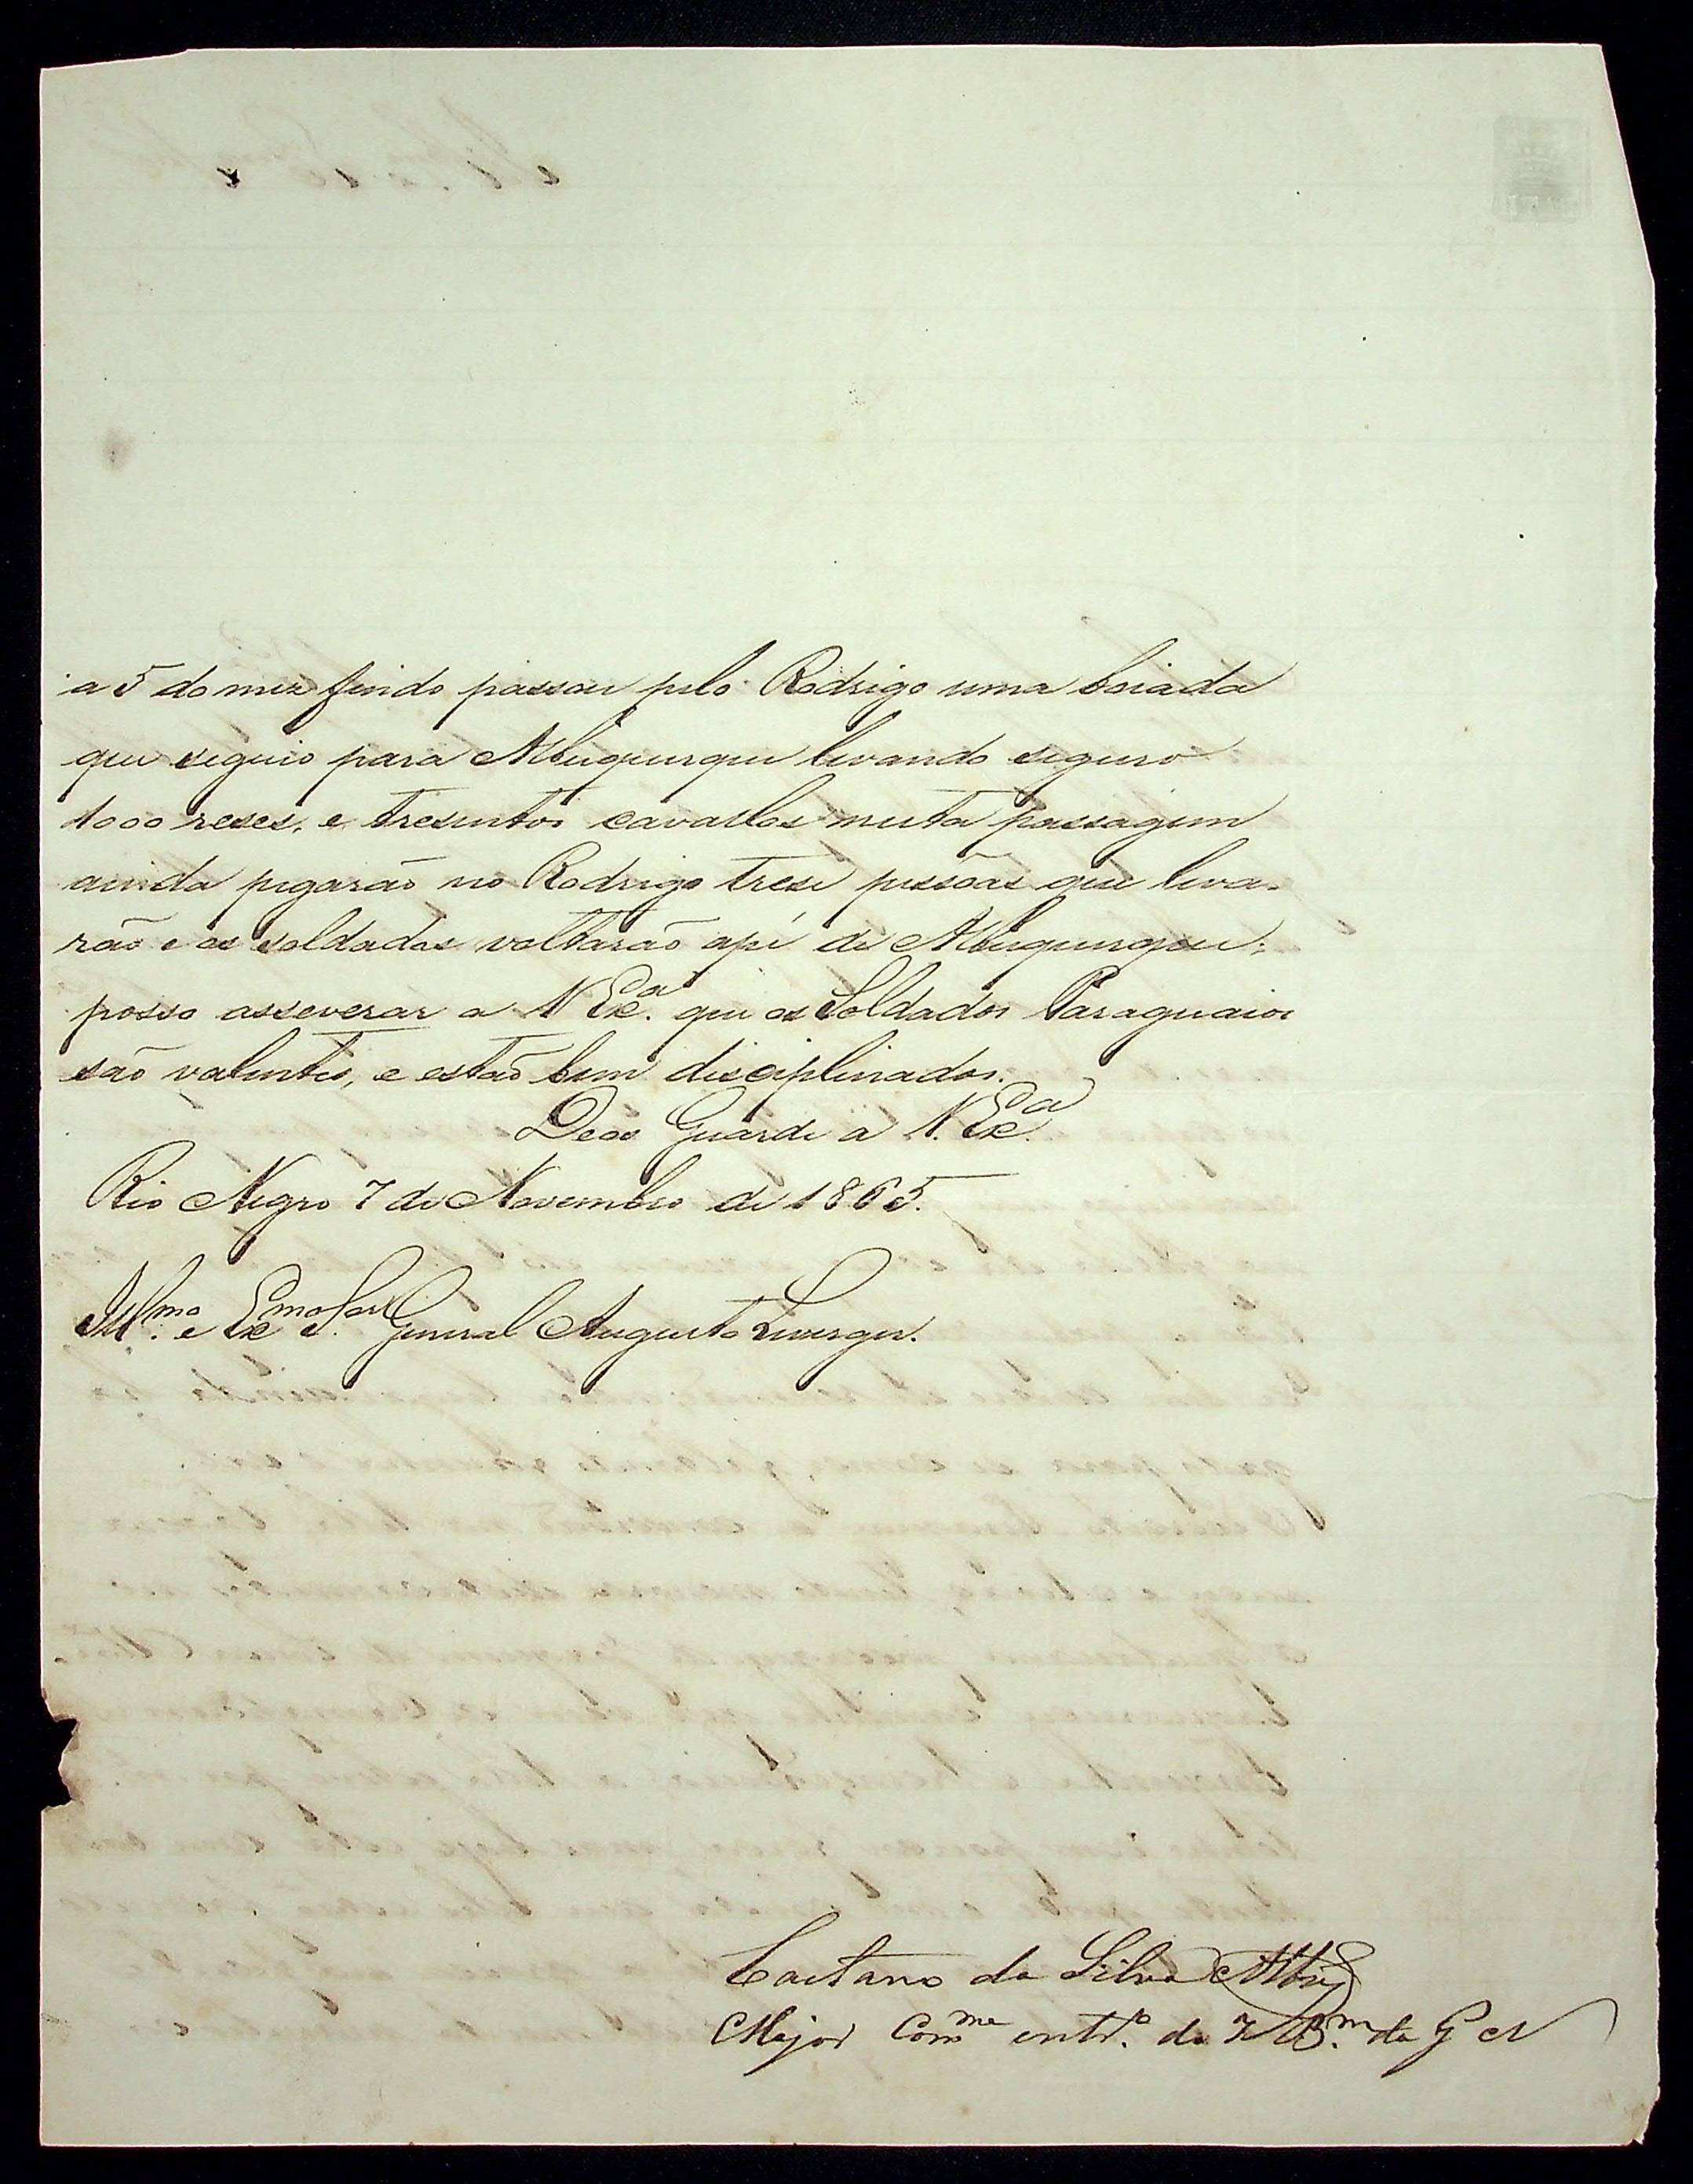 a 5 do mez findo passou pelo Rodrigo uma boiada
que seguio para Albuquerque levando seguro
1000 reses, e tresentos cavallos nesta passagem
ainda pegarão no Rodrigo trese pessõas que leva-
rão e os soldados voltarão apé de Albuquerque;
posso asseverar a V Exª. que os Soldados Paraguaios
são valentes, e estaõ bem disciplinados.
Deos Guarde a V. Exª.
Rio Negro 7 de Novembro de 1865.
Illmo. e Exmo Snr. General Augusto Leverger.
Caetano da Silva Albuq
Major Comme intrº. do 7 Bm. da G N